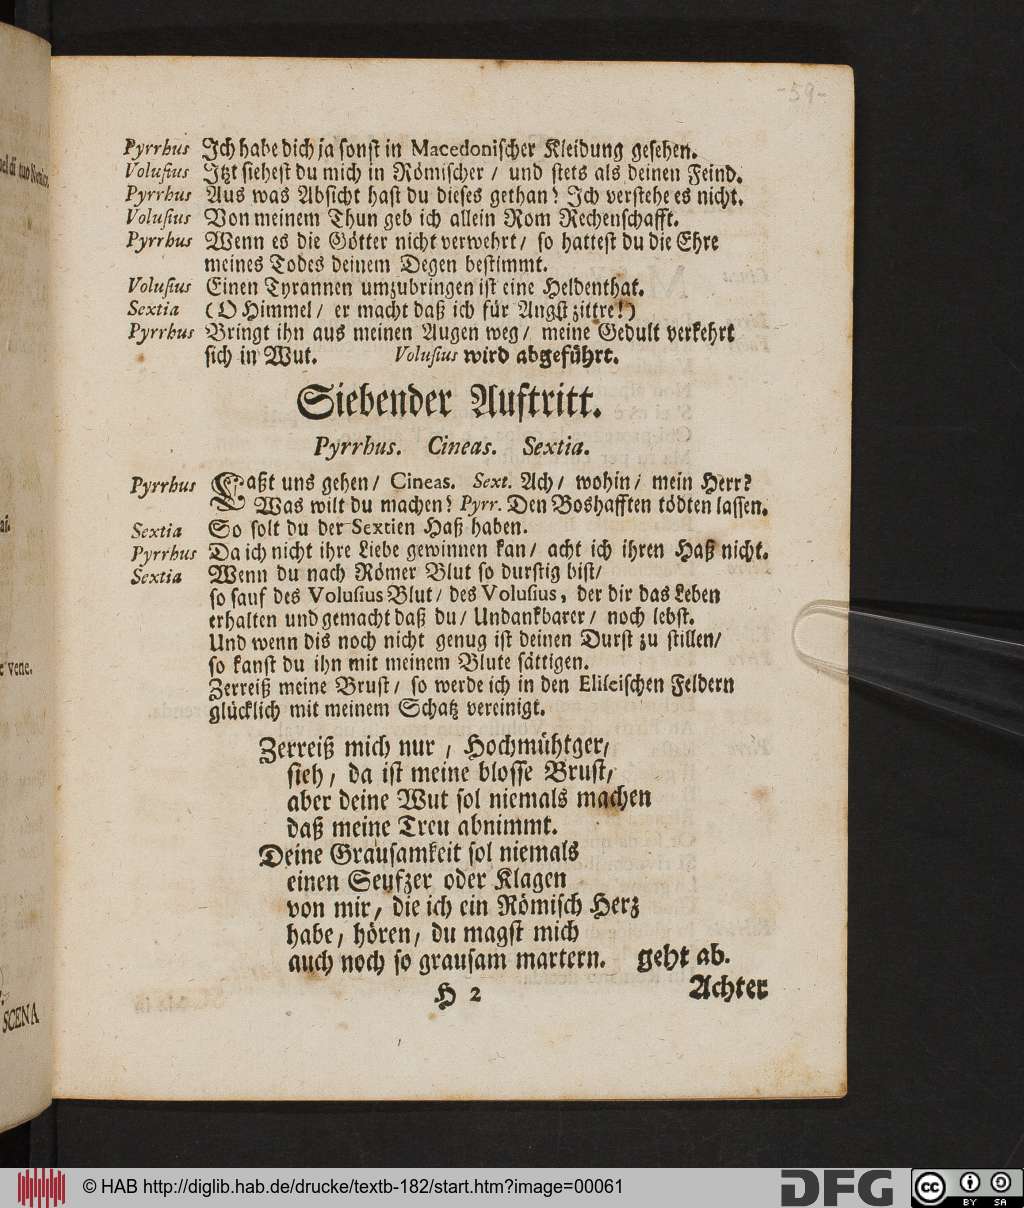 -59-
Pyrrhus Ich habe dich ja sonst in Macedonischer Kleidung gesehen.
Volusius Itzt siehest du mich in Römischer / und stets als deinen Feind.
Pyrrhus Aus was Absicht hast du dieses gethan? Ich verstehe es nicht.
Volusius Von meinem Thun geb ich allein Rom Rechenschafft.
Pyrrhus Wenn es die Götter nicht verwehrt / so hattest du die Ehre
meines Todes deinem Degen bestimmt.
Volusius Einen Tyrannen umzubringen ist eine Heldenthat.
Sextia (O Himmel / er macht daß ich für Angst zittre!)
Pyrrhus Bringt ihn aus meinen Augen weg / meine Gedult verkehrt
sich in Wut. Volusius wird abgeführt.
Siebender Auftritt.
Pyrrhus. Cineas. Sextia.
Pyrrhus Laßt uns gehen / Cineas. Sext. Ach / wohin / mein Herr?
Was wilt du machen? Pyrr. Den Boshafften tödten lassen.
Sextia So solt du der Sextien Haß haben.
Pyrrhus Da ich nicht ihre Liebe gewinnen kan / acht ich ihren Haß nicht.
Sextia Wenn du nach Römer Blut so durstig bist /
so sauf des Volusius Blut / des Volusius, der dir das Leben
erhalten und gemacht daß du / Undankbarer / noch lebst.
Und wenn dis noch nicht genug ist deinen Durst zu stillen /
so kanst du ihn mit meinem Blute sättigen.
Zerreiß meine Brust / so werde ich in den Eliseischen Feldern
glücklich mit meinem Schatz vereinigt.
Zerreiß mich nur / Hochmühtger /
sieh / da ist meine blosse Brust /
aber deine Wut sol niemals machen
daß meine Treu abnimmt.
Deine Grausamkeit sol niemals
einen Seufzer oder Klagen
von mir / die ich ein Römisch Herz
habe / hören / du magst mich
auch noch so grausam martern. geht ab.
H 2 Achter
e vene.
SCENA
© HAB http://diglib.hab.de/drucke/textb-182/start.htm?image=00061
DFG
cc BY SA